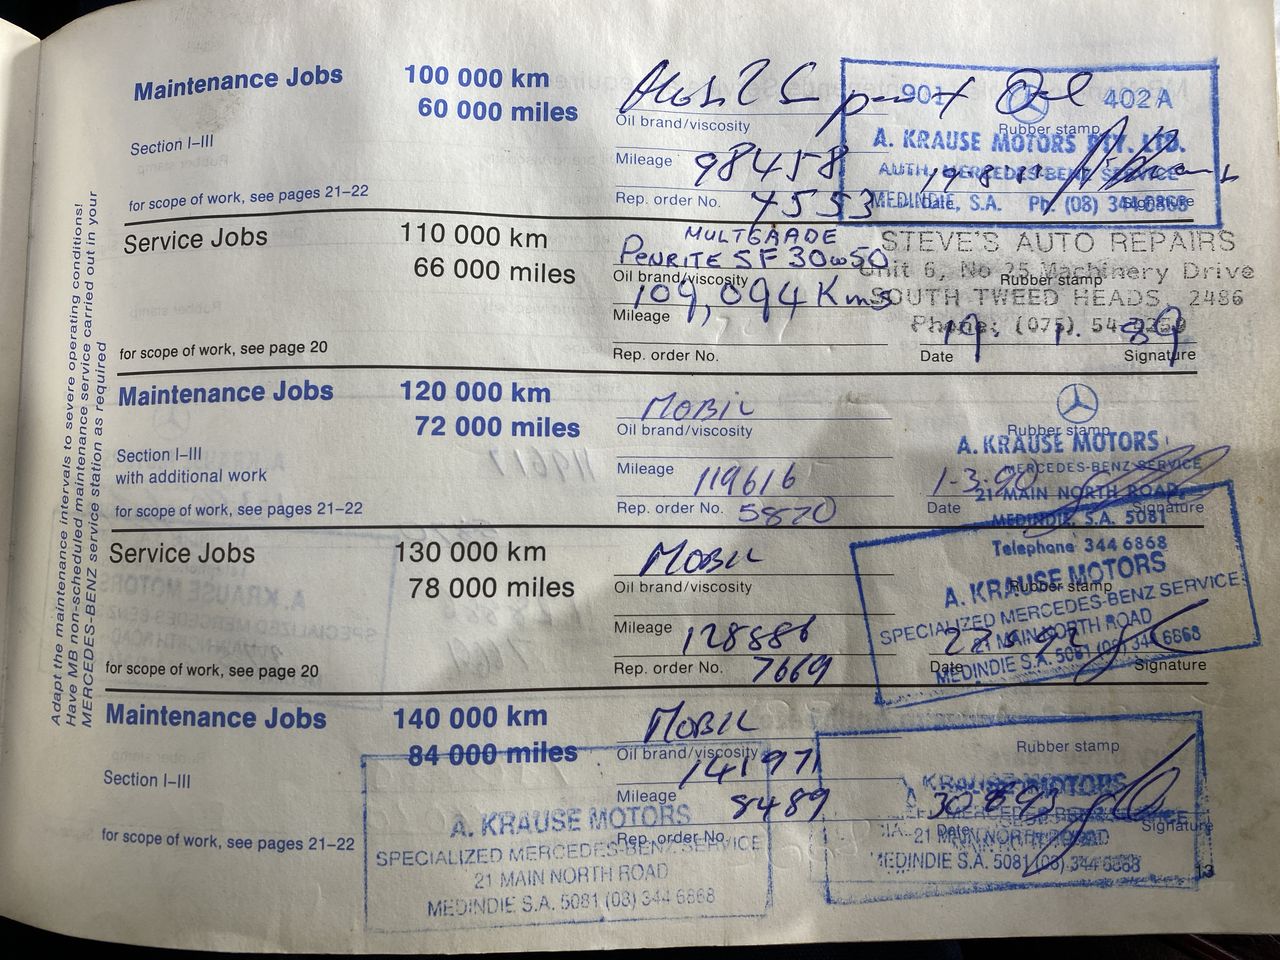 Adapt the maintenance intervals to severe operating conditions!
Have MB non-scheduled maintenance service carried out in your
MERCEDES-BENZ service station as required
Maintenance Jobs 100 000 km
60 000 miles
Section I–III
for scope of work, see pages 21–22
Oil brand/viscosity
Mileage 98458
Rep. order No. 4553
402 A
Rubber stamp
A. KRAUSE MOTORS PTY. LTD.
AUTH. MERCEDES-BENZ SERVICE
MEDINDIE, S.A. Ph. (08) 344 6868
Date Signature
Service Jobs 110 000 km
66 000 miles
for scope of work, see page 20
MULTGRADE
PENRITE SF 30w50
Oil brand/viscosity
109,094 Kms
Mileage
Rep. order No.
STEVE'S AUTO REPAIRS
Unit 6, No 25 Machinery Drive
Rubber stamp
SOUTH TWEED HEADS, 2486
Phone: (075)
Date Signature
Maintenance Jobs 120 000 km
72 000 miles
Section I–III
with additional work
for scope of work, see pages 21–22
MOBIL
Oil brand/viscosity
Mileage 119616
Rep. order No. 5820
Rubber stamp
A. KRAUSE MOTORS
MERCEDES-BENZ SERVICE
1-3-90
21 MAIN NORTH ROAD,
Date Signature
MEDINDIE, S.A. 5081
Telephone 344 6868
Service Jobs 130 000 km
78 000 miles
for scope of work, see page 20
MOBIL
Oil brand/viscosity
Mileage 128886
Rep. order No. 7669
Rubber stamp
A. KRAUSE MOTORS
SPECIALIZED MERCEDES-BENZ SERVICE
21 MAIN NORTH ROAD
MEDINDIE S.A. 5081 (08) 344 6868
Date Signature
Maintenance Jobs 140 000 km
84 000 miles
Section I–III
for scope of work, see pages 21–22
MOBIL
Oil brand/viscosity
141971
Mileage
8489
Rep. order No.
A. KRAUSE MOTORS
SPECIALIZED MERCEDES-BENZ SERVICE
21 MAIN NORTH ROAD
MEDINDIE S.A. 5081 (08) 344 6868
Rubber stamp
KRAUSE MOTORS
Date Signature
21 MAIN NORTH ROAD
MEDINDIE S.A. 5081 (08) 344 6868
13